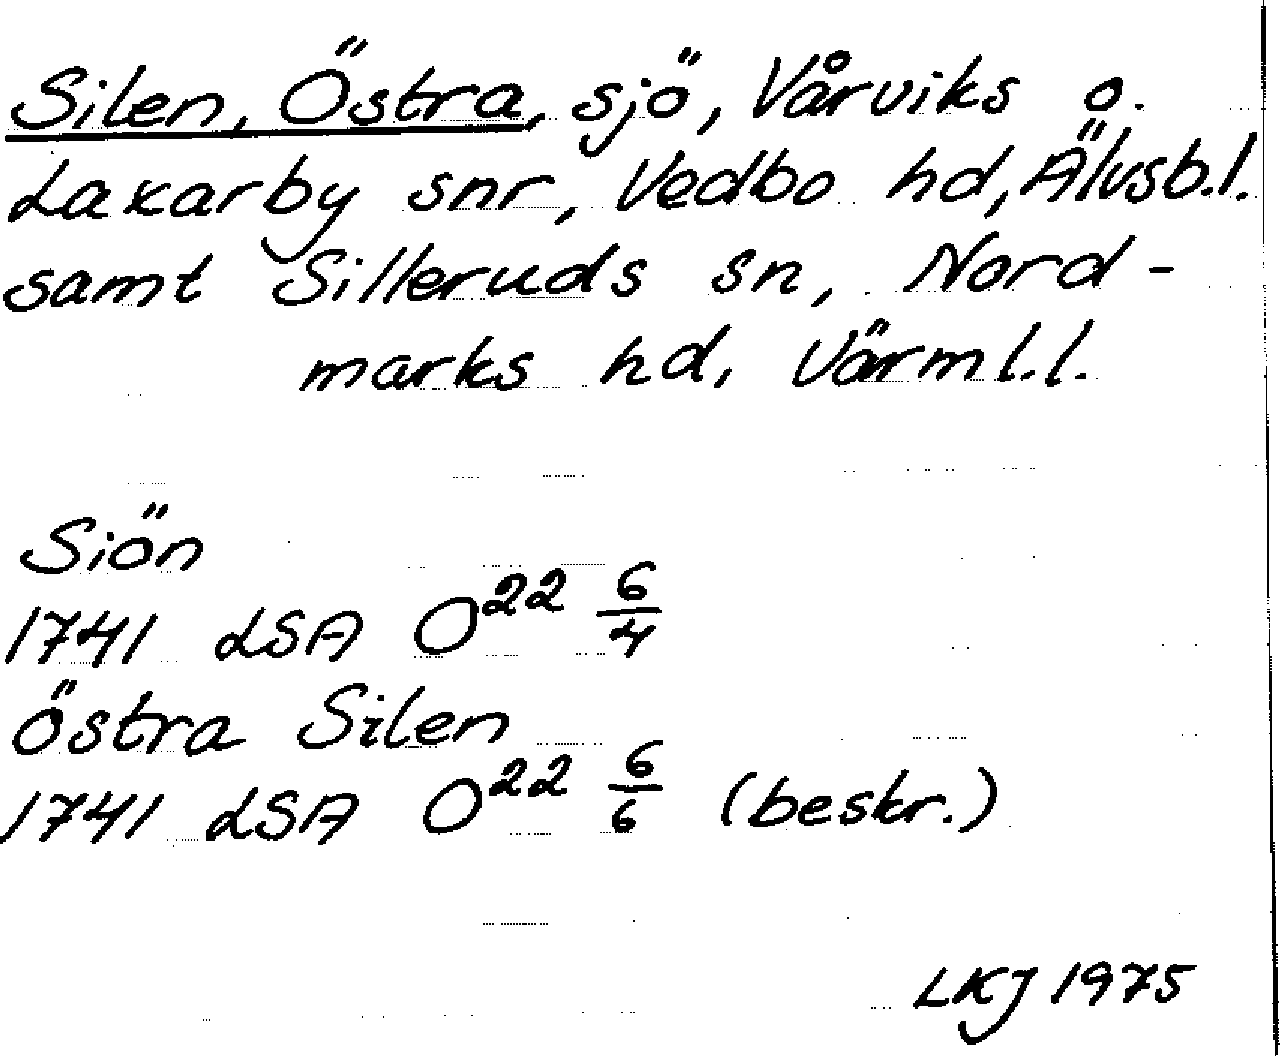 Silen, Östra, sjö, Vårviks o.
Laxarby snr, Vedbo hd, Älvsb.l.
samt Silleruds sn, Nord-
marks hd, Värml.l.
Siön
1741 LSA O²² 6/4
Östra Silen
1741 LSA O²² 6/6 (beskr.)
LKJ 1975